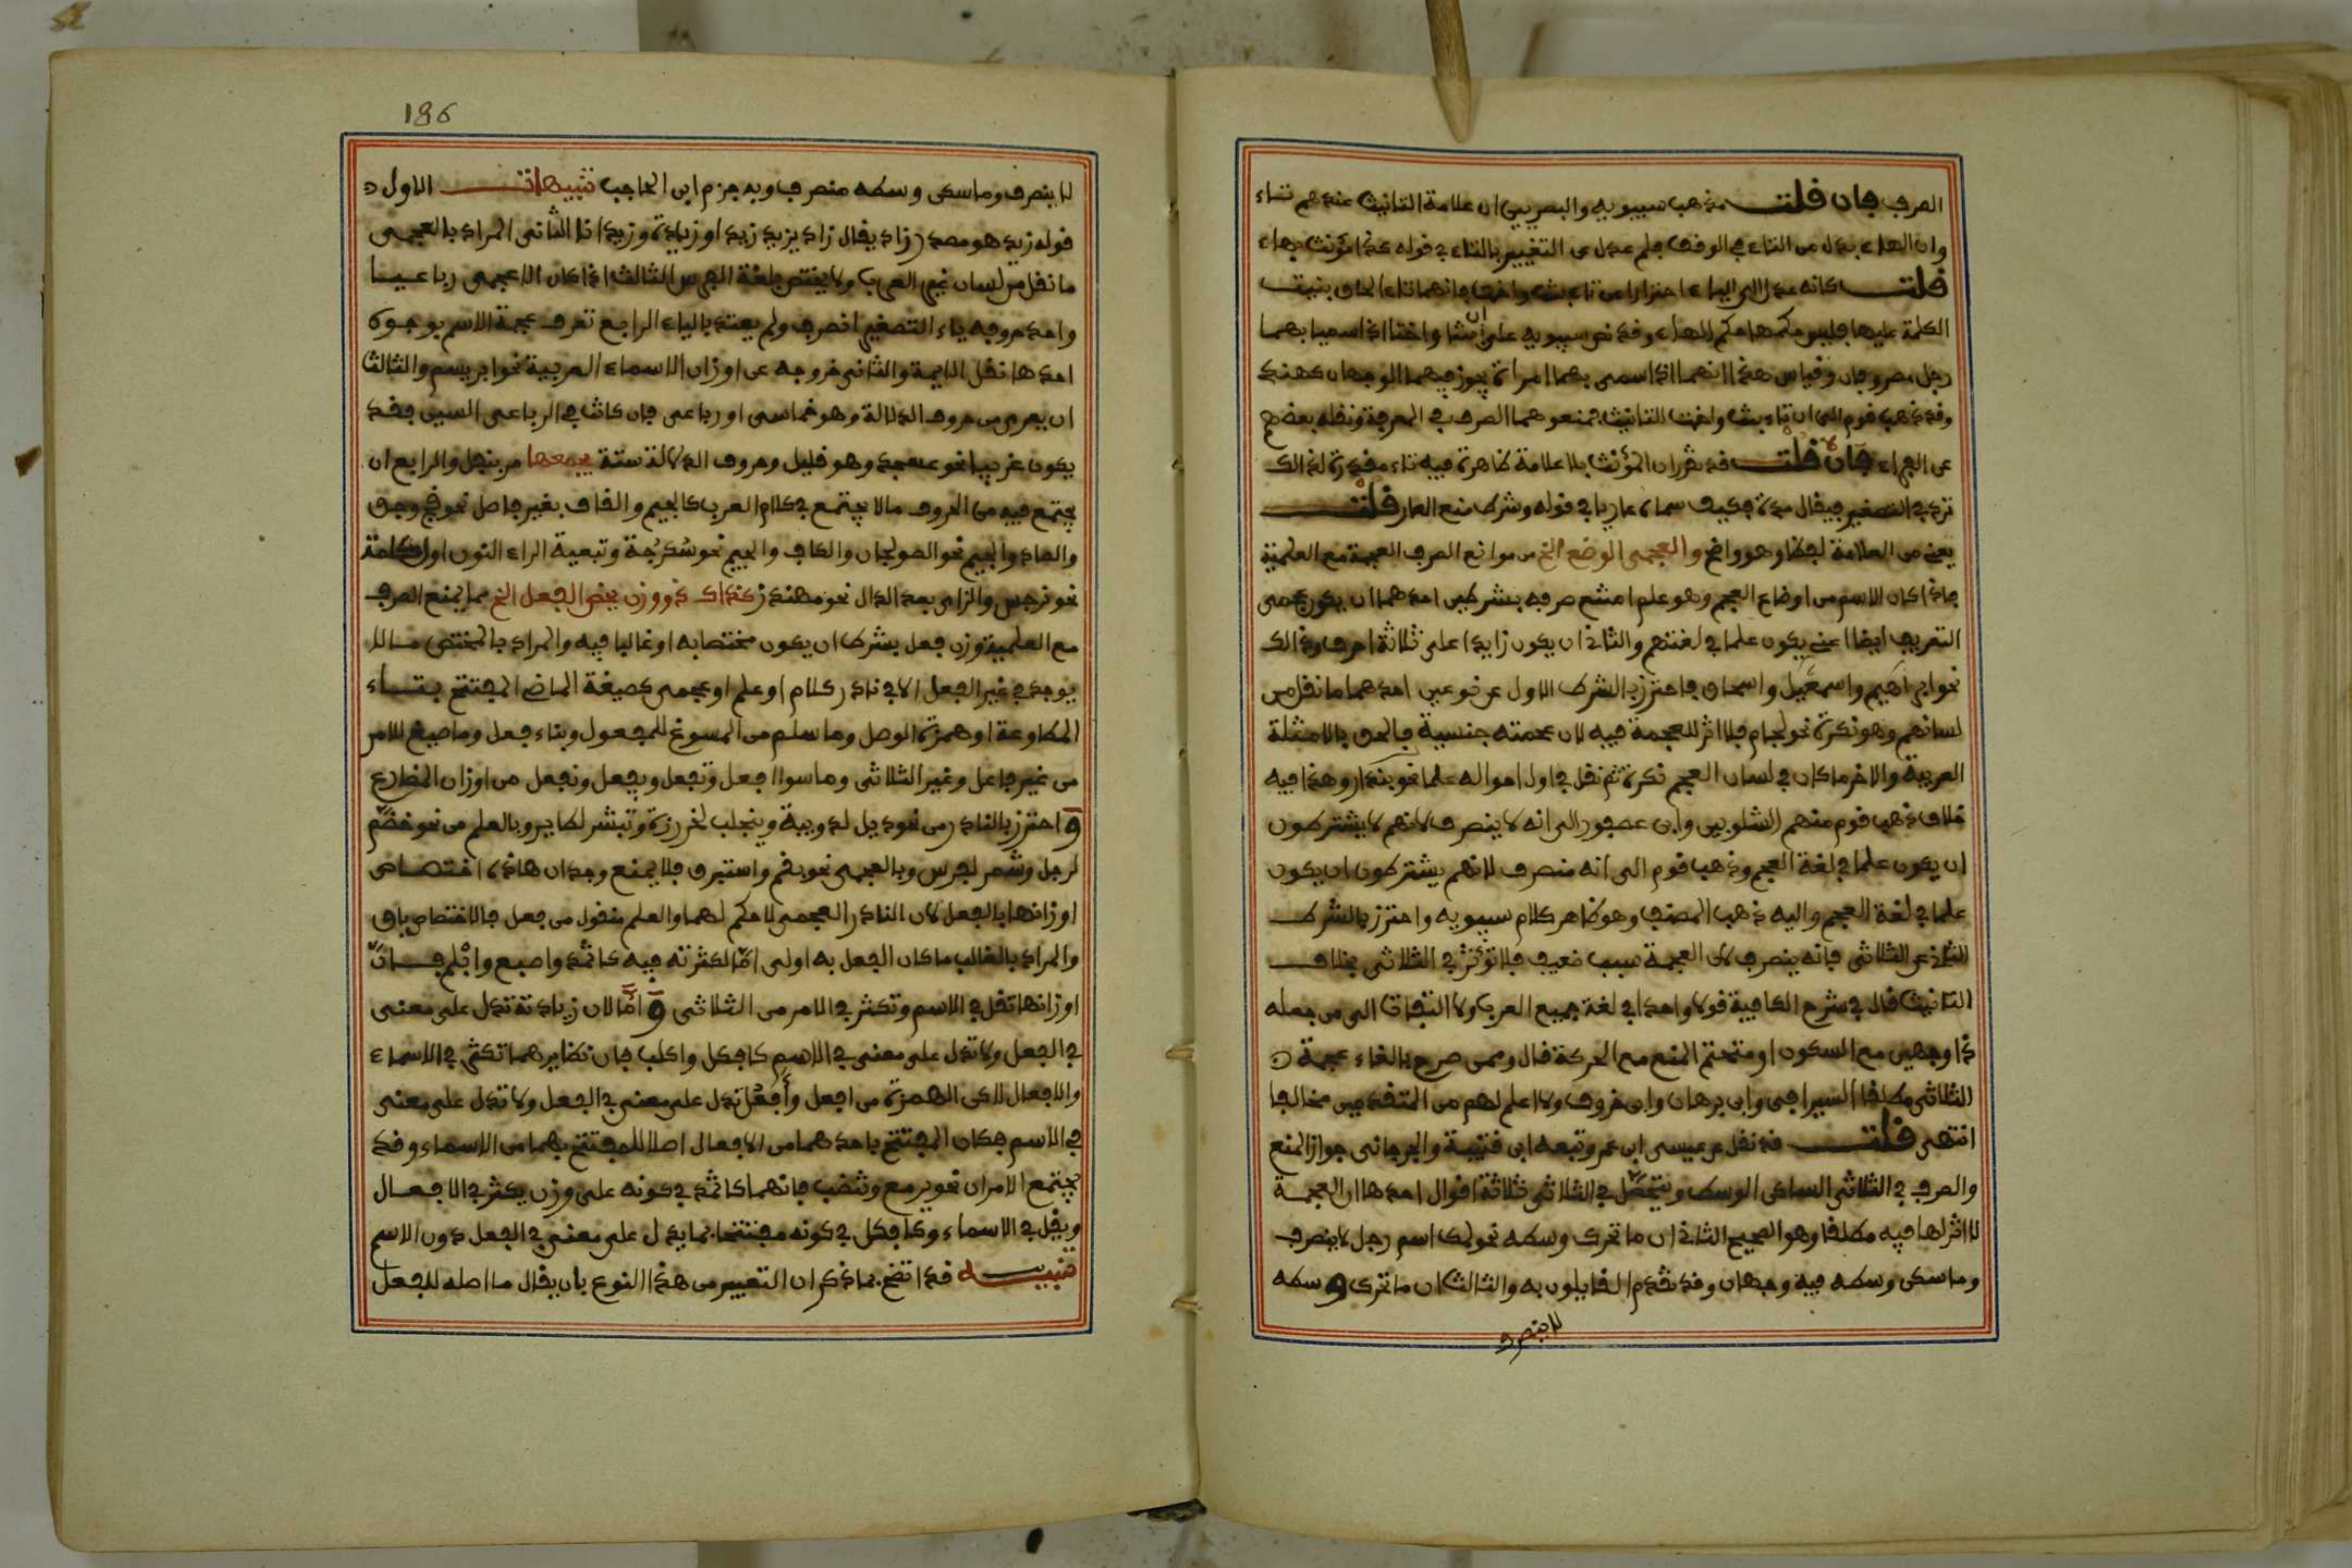 الصرف فإن قلت مذهب سيبويه والبصريين ان علامة التانيث عندهم تاء
وان الهاء بدل من التاء في الوقف فلم عدل عن التعبير بالتاء في قوله كذا مؤنث بهاء
قلت كانه عدل الى الهاء احترازا من تاء بنت واخت فانهما تاء الحاق بنيت
الكلمة عليها فليس حكمها حكم الهاء وقد نص سيبويه على ان بنتا واختا اذا سميا بهما
رجل مصروفان وقياس هذا انهما اذا سمي بهما امراة يجوز فيهما الوجهان كهند
وقد ذهب قوم الى ان تاء بنت واخت للتانيث فمنعوهما الصرف في المعرفة ونقله بعضهم
عن الفراء فان قلت قد تقرر ان المؤنث بلا علامة ظاهرة فيه تاء مقدرة لذالك
ترد في التصغير فيقال هندة فكيف سماه عاريا في قوله وشرط منع العار قلت
يعني من العلامة لفظا وهو واضح والعجمي الوضع الخ من موانع الصرف العجمة مع العلمية
فاذا كان الاسم من اوضاع العجم وهو علم امتنع صرفه بشرطين احدهما ان يكون عجمي
التعريف ايضا اعني يكون علما في لغتهم والثاني ان يكون زايدا على ثلاثة احرف وذالك
نحو ابراهيم واسمعيل واسحاق فاحترز بالشرط الاول عن نوعين احدهما ما نقل من
لسانهم وهو نكرة نحو لجام فلا اثر للعجمة فيه لان عجمته جنسية فالحق بالامثلة
العربية والاخر ما كان في لسان العجم نكرة ثم نقل في اول احواله علما نحو بندار وهذا فيه
خلاف ذهب قوم منهم الشلوبين وابن عصفور الى انه لا ينصرف لانهم لا يشترطون
ان يكون علما في لغة العجم وذهب قوم الى انه منصرف لانهم يشترطون ان يكون
علما في لغة العجم واليه ذهب المصنف وهو ظاهر كلام سيبويه واحترز بالشرط
الثاني عن الثلاثي فانه ينصرف لان العجمة سبب ضعيف فلا تؤثر في الثلاثي بخلاف
التانيث قال في شرح الكافية قولا واحدا في لغة جميع العرب ولا التفات الى من جعله
ذا وجهين مع السكون او متحتم المنع مع الحركة قال وممن صرح بالغاء عجمة
الثلاثي مطلقا السيرافي وابن برهان وابن خروف ولا اعلم لهم من المتقدمين مخالفا
انتهى قلت قد نقل عن عيسى ابن عمر وتبعه ابن قتيبة والجرجاني جواز المنع
والصرف في الثلاثي الساكن الوسط ويتحصل في الثلاثي ثلاثة اقوال احدها ان العجمة
لا اثر لها فيه مطلقا وهو الصحيح الثاني ان ما تحرك وسطه نحو لمك اسم رجل لا ينصرف
وما سكن وسطه فيه وجهان وقد تقدم القايلون به والثالث ان ما تحرك وسطه
لا ينصرف
186
لا ينصرف وما سكن وسطه منصرف وبه جزم ابن الحاجب تنبيهات الاول
قوله زيد هو مصدر زاد يقال زاد يزيد زيدا وزيادة وزيدانا الثاني المراد بالعجمي
ما نقل من لسان غير العرب ولا يختص بلغة الفرس الثالث اذا كان الاعجمي رباعيا
واحد حروفه ياء التصغير انصرف ولم يعتد بالياء الرابع تعرف عجمة الاسم بوجوه
احدها نقل الايمة والثاني خروجه عن اوزان الاسماء العربية نحو ابريسم والثالث
ان يعرى من حروف الدلالة وهو خماسي او رباعي فان كان في الرباعي السين فقد
يكون عربيا نحو عسجد وهو قليل وحروف الدلالة ستة يجمعها مر بنفل والرابع ان
يجتمع فيه من الحروف ما لا يجتمع في كلام العرب كالجيم والقاف بغير فاصل نحو قج وجق
والصاد والجيم نحو الصولجان والكاف والجيم نحو سكرجة وتبعية الراء النون اول كلمة
نحو نرجس والزاي بعد الدال نحو مهندز كذاك ذو وزن يخص الفعل الخ مما يمنع الصرف
مع العلمية وزن فعل بشرط ان يكون مختصا به او غالبا فيه والمراد بالمختص ما لا
يوجد في غير الفعل الا في نادر كلام او علم او عجمي كصيغة الماضي المفتتح بتاء
المطاوعة او همزة الوصل وما سلم من المصوغ للمفعول وبناء فعل وما صيغ للامر
من غير فاعل وغير الثلاثي وما سوا افعل وتفعل ويفعل ونفعل من اوزان المضارع
و احترز بالنادر من نحو دئل لدويبة وينجلب لخرزة وتبشر لطاير وبالعلم من نحو خضم
لرجل وشمر لفرس وبالعجمي نحو بقم واستبرق فلا يمنع وجدان هاذه اختصاص
اوزانها بالفعل لان النادر العجمي لا حكم لهما والعلم منقول من فعل فالاختصاص باق
والمراد بالغالب ما كان الفعل به اولى اما لكثرته فيه كاثمد واصبع وابلم فان
اوزانها تقل في الاسم وتكثر في الامر من الثلاثي و اما لان زيادته تدل على معنى
في الفعل ولا تدل على معنى في الاسم كافكل واكلب فان نظايرهما تكثر في الاسماء
والافعال لاكن الهمزة من افعل وأفعُل تدل على معنى في الفعل ولا تدل على معنى
في الاسم فكان المفتتح باحدهما من الافعال اصلا للمفتتح بهما من الاسماء وقد
يجتمع الامران نحو يرمع وتنضب فانهما كاثمد في كونه على وزن يكثر في الافعال
ويقل في الاسماء وكافكل في كونه مفتتحا بما يدل على معنى في الفعل دون الاسم
تنبيه قد اتضح بما ذكر ان التعبير من هذا النوع بان يقال ما اصله للفعل